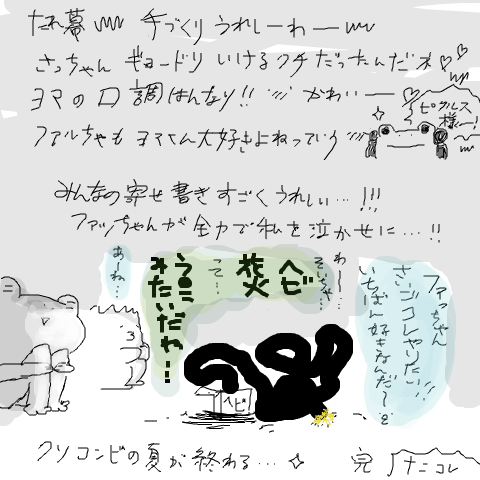 たれ幕 手づくり うれしーわー
さっちゃん ギョードリ いけるクチ だったんだネ♡♡
ヨマの口調はんなり!! かわいー♡
ピクルス様ー!
ファルちゃも ヨマさん大好きよねっていう
みんなの寄せ書きすごくうれしい…!!!
ファッちゃんが全力で私を泣かせに…!!
あーね…
ヘビ
花火
って…
う●こ
みたいだわ…!
わー…
そいじゃ…
ファっちゃん
さいごコレやりたい!!
いちばん好きなんだ〜
ヘビ
クソコンビの夏が終わる…
完
ナニコレ